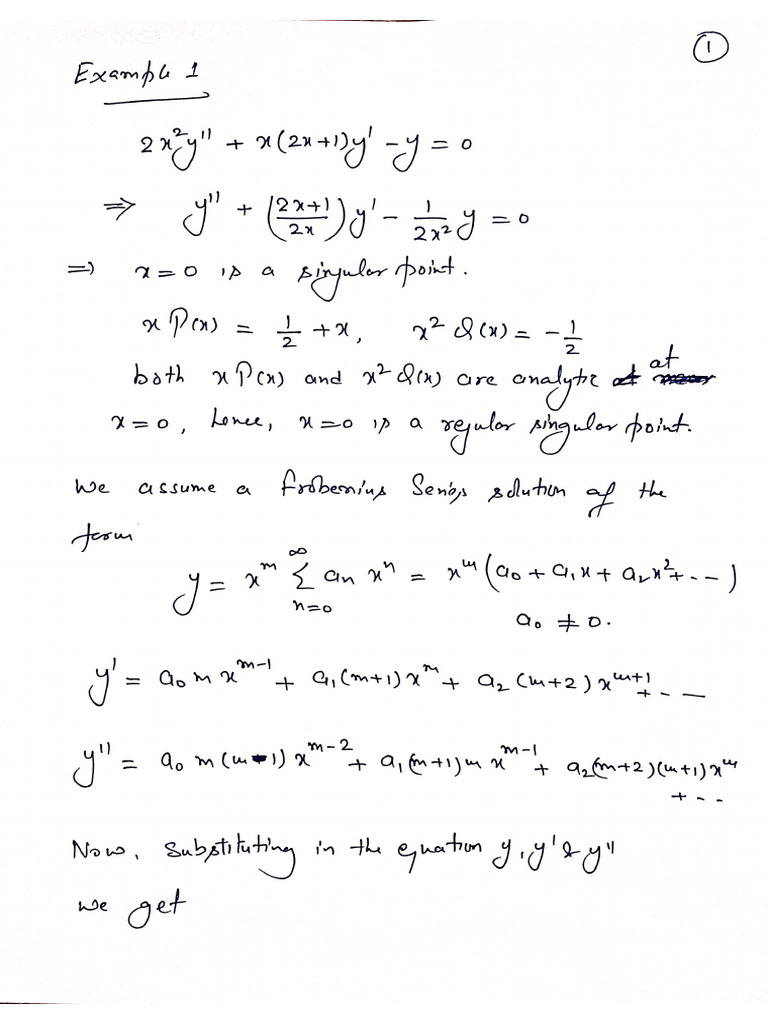 ①
Example 1
2x²y'' + x(2x+1)y' - y = 0
⇒ y'' + ((2x+1)/2x) y' - (1/2x²) y = 0
⇒ x = 0 is a singular point.
x P(x) = 1/2 + x, x² Q(x) = -1/2
both x P(x) and x² Q(x) are analytic at
x = 0, hence, x = 0 is a regular singular point.
We assume a Frobenius Series solution of the
form
y = x^m ∑_{n=0}^{∞} a_n x^n = x^m (a_0 + a_1 x + a_2 x² + ...)
a_0 ≠ 0.
y' = a_0 m x^{m-1} + a_1 (m+1) x^m + a_2 (m+2) x^{m+1} + ...
y'' = a_0 m (m-1) x^{m-2} + a_1 (m+1) m x^{m-1} + a_2 (m+2)(m+1) x^m
+ ...
Now, substituting in the equation y, y' & y''
we get